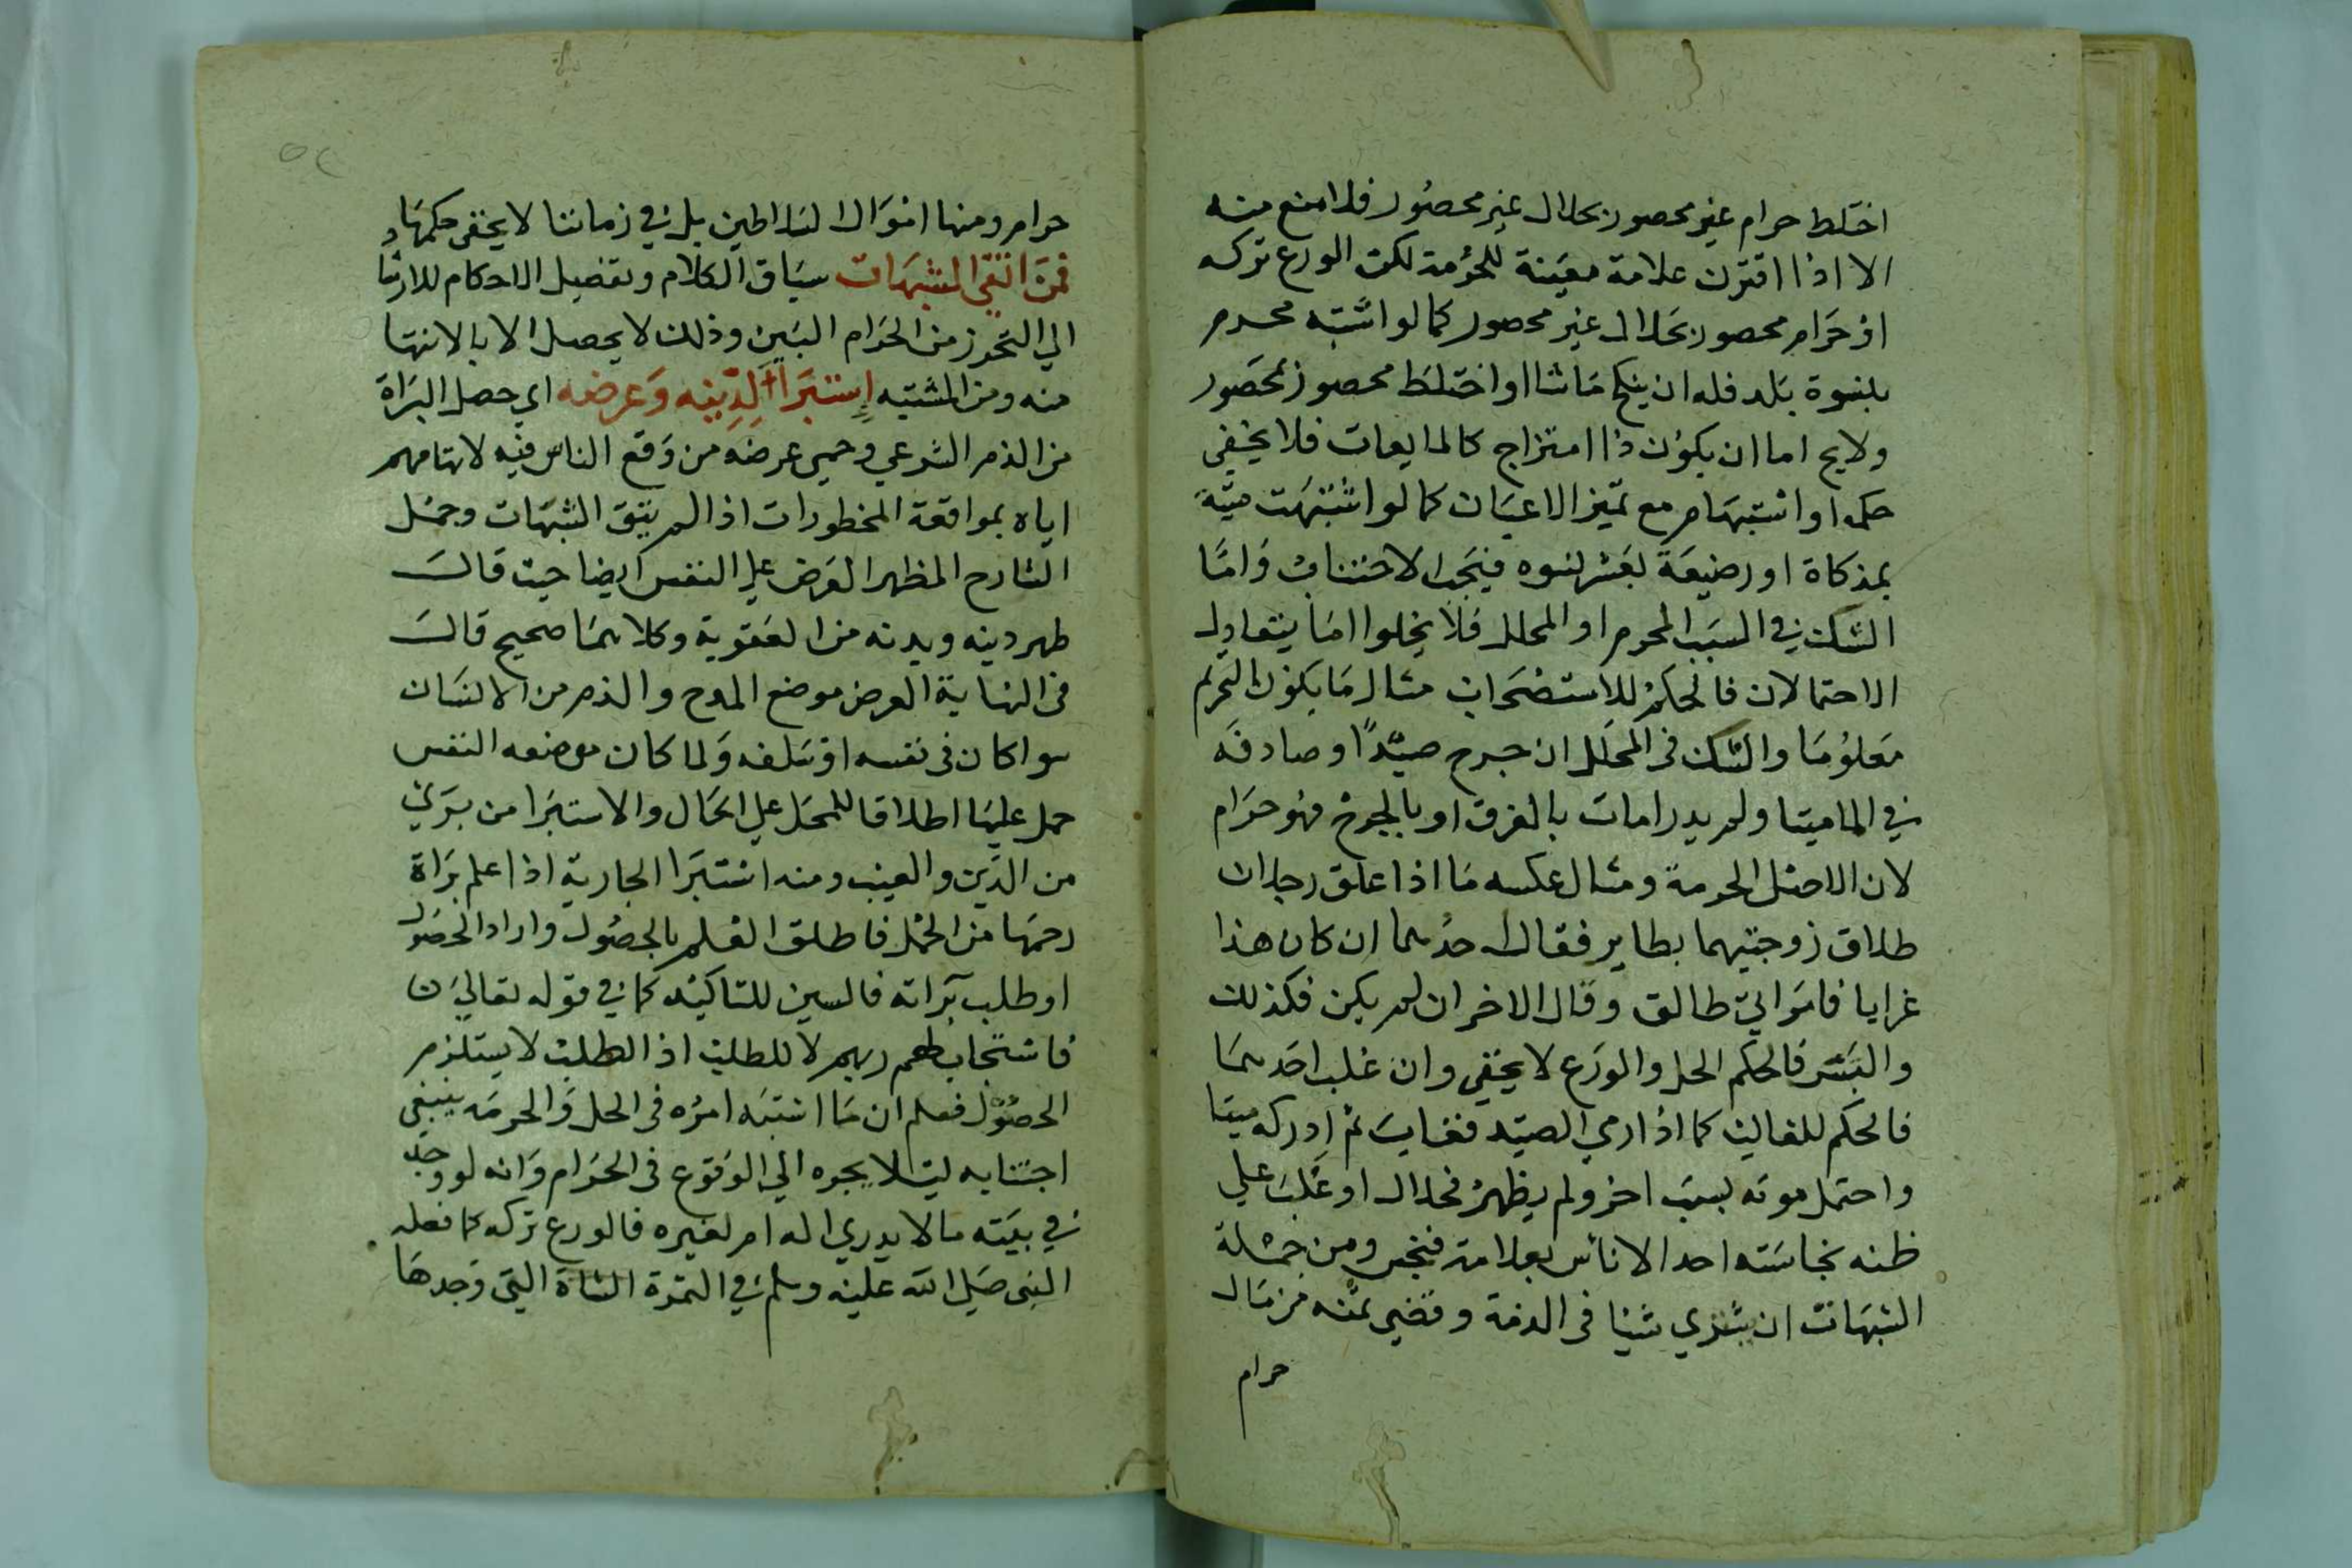 اختلط حرام غير محصور بحلال غير محصور فلا منع منه
الا اذا اقترن علامة معينة للحرمة لكن الورع تركه
او حرام محصور بحلال غير محصور كما لو اشتبه محرم
بنسوة بلد فله ان ينكح ما شا او اختلط محصور بمحصور
ولايح اما ان يكون ذا امتزاج كالمايعات فلا يخفى
حكمه او اشتبهام مع تميز الاعيان كما لو اشتبهت ميتة
بمذكاة او رضيعة بعشر نسوه فيجب الاجتناب واما
الشك في السبب المحرم او المحلل فلا يخلوا اما يتعادل
الاحتمالان فالحكم للاستصحاب مثال ما يكون التحريم
معلوما والشك في المحلل ان جرح صيدا وصادفه
في الما ميتا ولم يدر امات بالغرق او بالجرح فهو حرام
لان الاصل الحرمة ومثال عكسه ما اذا علق رجلان
طلاق زوجتيهما بطاير فقال احدهما ان كان هذا
غرابا فامراتي طالق وقال الاخر ان لم يكن فكذلك
والتبس فالحكم الحل والورع لا يخفى وان غلب احدهما
فالحكم للغالب كما اذا رمي الصيد فغاب ثم ادركه ميتا
واحتمل موته بسبب اخر ولم يظهر فحلال او غلب على
ظنه نجاسته احد الاناس بعلامة فنجس ومن جملة
الشبهات ان يشتري شيا في الذمة وقضي ثمنه من مال
حرام
حرام ومنها اموال السلاطين بل في زماننا لا يخفى حكمها
فمن اتقى المشبهات سياق الكلام وتفصيل الاحكام للارشاد
الي التحرز من الحرام البين وذلك لا يحصل الا بالانتها
منه ومن المشتبه إستبرأ لدينه وعرضه اي حصل البراة
من الذم الشرعي وحمي عرضه من وقع الناس فيه لاتهامهم
اياه بمواقعة المحظورات اذا لم يتق الشبهات وحمل
الشارح المظهر العرض علي النفس ايضا حيث قال
طهر دينه وبدنه من العقوبة وكلاهما صحيح قال
في النهاية العرض موضع المدح والذم من الانسان
سوا كان في نفسه او سلفه ولما كان موضعه النفس
حمل عليها اطلاقا للمحل علي الحال والاستبرا من بري
من الدين والعيب ومنه استبرا الجارية اذا علم براة
رحمها من الحمل فاطلق العلم بالحصول واراد الحصول
او طلب براته فالسين للتاكيد كما في قوله تعالي
فاستجاب لهم ربهم لا للطلب اذ الطلب لا يستلزم
الحصول فعلم ان ما اشتبه امره في الحل والحرمه ينبغي
اجتنابه ليلا يجره الي الوقوع في الحرام وانه لو وجد
في بيته ما لا يدري اله ام لغيره فالورع تركه كما فعله
النبي صلي الله عليه وسلم في التمرة الساقطة التي وجدها